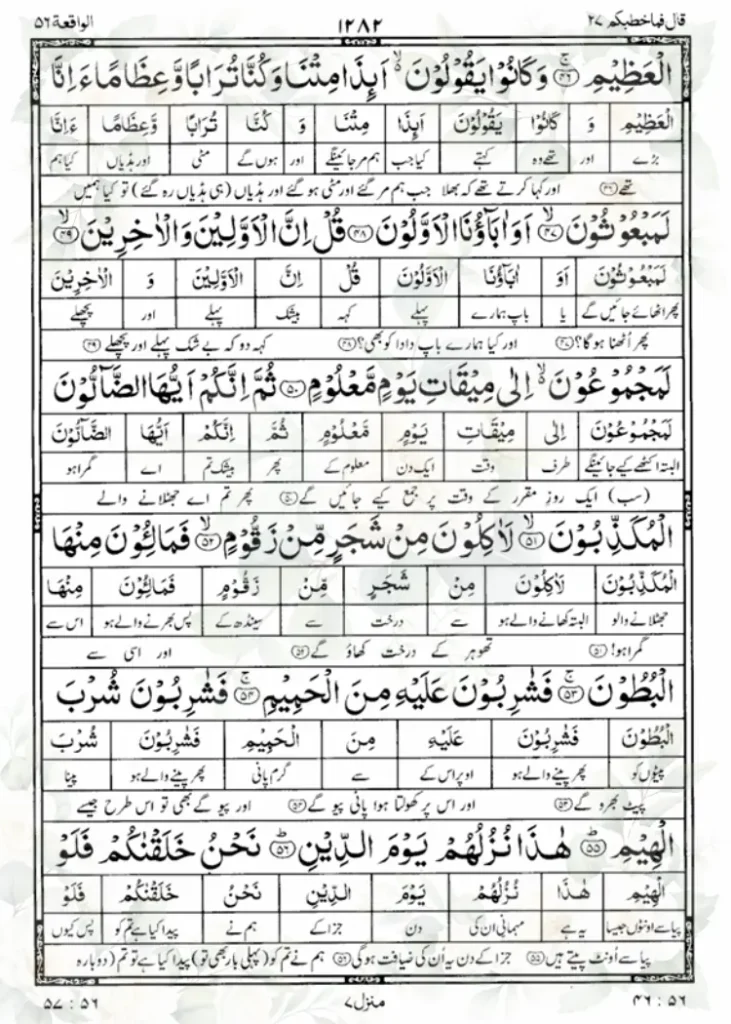 قال فماخطبكم ٢٧ ١٢٨٢ الواقعة ٥٦
الْعَظِيْمِ ۚ‏﴿۴۶﴾ وَكَانُوْا يَقُوْلُوْنَ ۙ اَىِٕذَا مِتْنَا وَكُنَّا تُرَابًا وَّعِظَامًا ءَاِنَّا
الْعَظِيْمِ وَ كَانُوْا يَقُوْلُوْنَ اَىِٕذَا مِتْنَا وَ كُنَّا تُرَابًا وَّعِظَامًا ءَاِنَّا
بڑے اور تھے وہ کہتے کیا جب ہم مر جائینگے اور ہوں گے مٹی اور ہڈیاں کیا ہم
تھے ﴿۴۶﴾ اور کہا کرتے تھے کہ بھلا جب ہم مر گئے اور مٹی ہو گئے اور ہڈیاں (ہی ہڈیاں رہ گئے) تو کیا ہمیں
لَمَبْعُوْثُوْنَ ۙ‏﴿۴۷﴾ اَوَاٰبَآؤُنَا الْاَوَّلُوْنَ ‏﴿۴۸﴾ قُلْ اِنَّ الْاَوَّلِيْنَ وَالْاٰخِرِيْنَ ۙ‏﴿۴۹﴾
لَمَبْعُوْثُوْنَ اَوَ اٰبَآؤُنَا الْاَوَّلُوْنَ قُلْ اِنَّ الْاَوَّلِيْنَ وَ الْاٰخِرِيْنَ
پھر اٹھائے جائیں گے یا باپ ہمارے پہلے کہہ بیشک پہلے اور پچھلے
پھر اُٹھنا ہو گا؟ ﴿۴۷﴾ اور کیا ہمارے باپ دادا کو بھی؟ ﴿۴۸﴾ کہہ دو کہ بے شک پہلے اور پچھلے ﴿۴۹﴾
لَمَجْمُوْعُوْنَ ۙ اِلٰى مِيْقَاتِ يَوْمٍ مَّعْلُوْمٍ ‏﴿۵۰﴾ ثُمَّ اِنَّكُمْ اَيُّهَا الضَّآلُّوْنَ
لَمَجْمُوْعُوْنَ اِلٰى مِيْقَاتِ يَوْمٍ مَّعْلُوْمٍ ثُمَّ اِنَّكُمْ اَيُّهَا الضَّآلُّوْنَ
البتہ اکٹھے کیے جائینگے طرف وقت ایک دن معلوم کے پھر بیشک تم اے گمراہو
(سب) ایک روز مقرر کے وقت پر جمع کیے جائیں گے ﴿۵۰﴾ پھر تم اے جھٹلانے والے
الْمُكَذِّبُوْنَ ۙ‏﴿۵۱﴾ لَاٰكِلُوْنَ مِنْ شَجَرٍ مِّنْ زَقُّوْمٍ ۙ‏﴿۵۲﴾ فَمَالِـُٔوْنَ مِنْهَا
الْمُكَذِّبُوْنَ لَاٰكِلُوْنَ مِنْ شَجَرٍ مِّنْ زَقُّوْمٍ فَمَالِـُٔوْنَ مِنْهَا
جھٹلانے والو البتہ کھانے والے ہو سے درخت سے سینڈھ کے پس بھرنے والے ہو اس سے
گمراہو! ﴿۵۱﴾ تھوہر کے درخت کھاؤ گے ﴿۵۲﴾ اور اسی سے
الْبُطُوْنَ ۚ‏﴿۵۳﴾ فَشٰرِبُوْنَ عَلَيْهِ مِنَ الْحَمِيْمِ ۚ‏﴿۵۴﴾ فَشٰرِبُوْنَ شُرْبَ
الْبُطُوْنَ فَشٰرِبُوْنَ عَلَيْهِ مِنَ الْحَمِيْمِ فَشٰرِبُوْنَ شُرْبَ
پیٹوں کو پھر پینے والے ہو اوپر اس کے سے گرم پانی پھر پینے والے ہو پینا
پیٹ بھرو گے ﴿۵۳﴾ اور اس پر کھولتا ہوا پانی پیو گے ﴿۵۴﴾ اور پیو گے بھی تو اس طرح جیسے
الْهِيْمِ ؕ‏﴿۵۵﴾ هٰذَا نُزُلُهُمْ يَوْمَ الدِّيْنِ ؕ‏﴿۵۶﴾ نَحْنُ خَلَقْنٰكُمْ فَلَوْ
الْهِيْمِ هٰذَا نُزُلُهُمْ يَوْمَ الدِّيْنِ نَحْنُ خَلَقْنٰكُمْ فَلَوْ
پیاسے اونٹوں جیسا یہ ہے مہمانی ان کی دن جزا کے ہم نے پیدا کیا ہے تم کو پس کیوں
پیاسے اُونٹ پیتے ہیں ﴿۵۵﴾ جزا کے دن یہ اُن کی ضیافت ہو گی ﴿۵۶﴾ ہم نے تم کو (پہلی بار بھی تو) پیدا کیا ہے تو تم (دوبارہ
٥٦ : ٤٦ منزل٧ ٥٦ : ٥٧